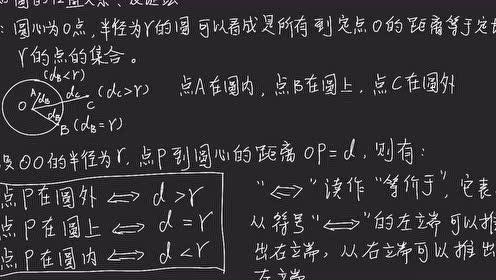 ：圆心为O点，半径为r的圆可以看成是所有到定点O的距离等于定
r的点的集合。
(dB<r)
A dB dC (dC>r)
O C
dB
B (dB=r)
点A在圆内，点B在圆上，点C在圆外
⊙O的半径为r，点P到圆心的距离OP=d，则有：
点P在圆外 ⟺ d>r
点P在圆上 ⟺ d=r
点P在圆内 ⟺ d<r
"⟺"读作"等价于"，它表
从符号"⟺"的左端可以推
出右端，从右端可以推出
左端